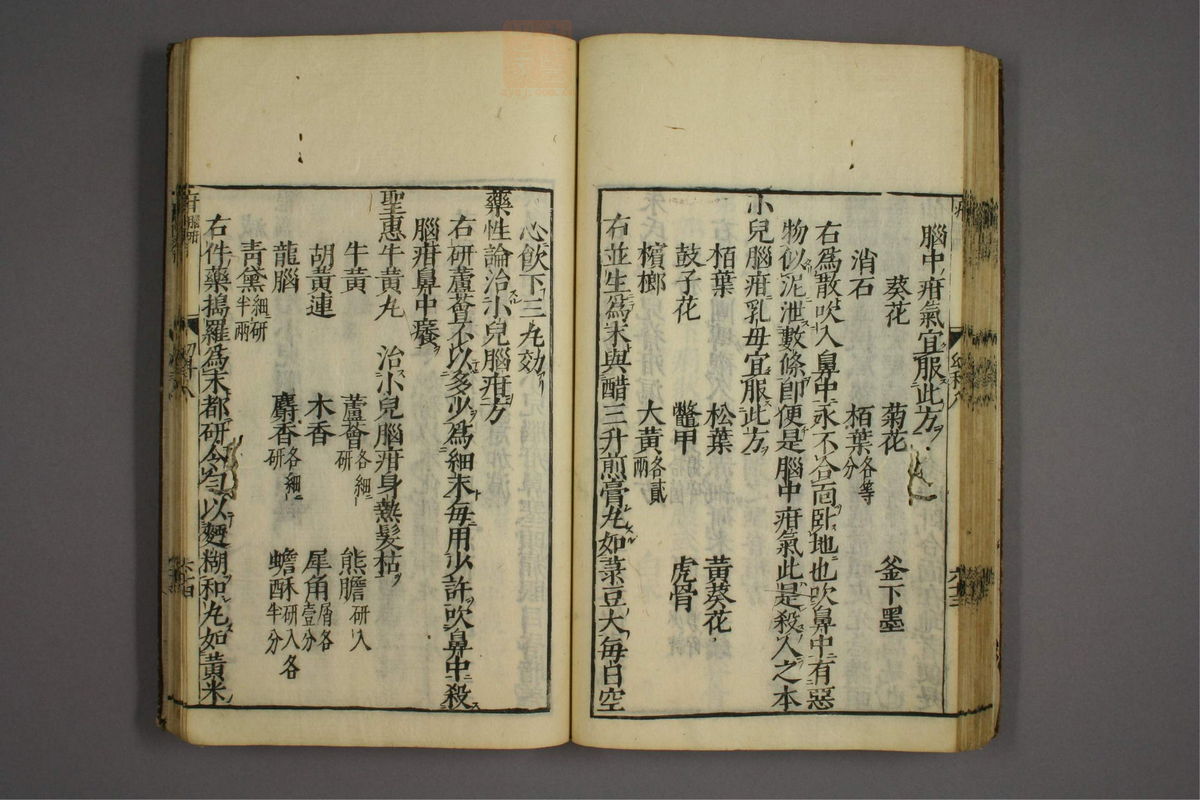 腦中疳氣宜服此方
葵花 菊花 釜下墨
消石 栢葉各等分
右爲散吹入鼻中永不合面卧地也吹鼻中有惡
物似泥泄數條卽便是腦中疳氣此是殺人之本
小兒腦疳乳母宜服此方
栢葉 松葉 黃葵花
鼓子花 鼈甲 虎骨
檳榔 大黃各貳兩
右並生爲末與醋三升煎膏丸如菉豆大每日空
心飲下三丸効
藥性論治小兒腦疳方
右研蘆薈不以多少爲細末每用少許吹鼻中殺
腦疳鼻中癢
聖惠牛黃丸 治小兒腦疳身熱髮枯
牛黃 蘆薈各細研 熊膽研入
胡黃連 木香 犀角屑各壹分
龍腦 麝香各細研 蟾酥研入各半分
靑黛細研半兩
右件藥搗羅爲末都研令勻以麵糊和丸如黃米